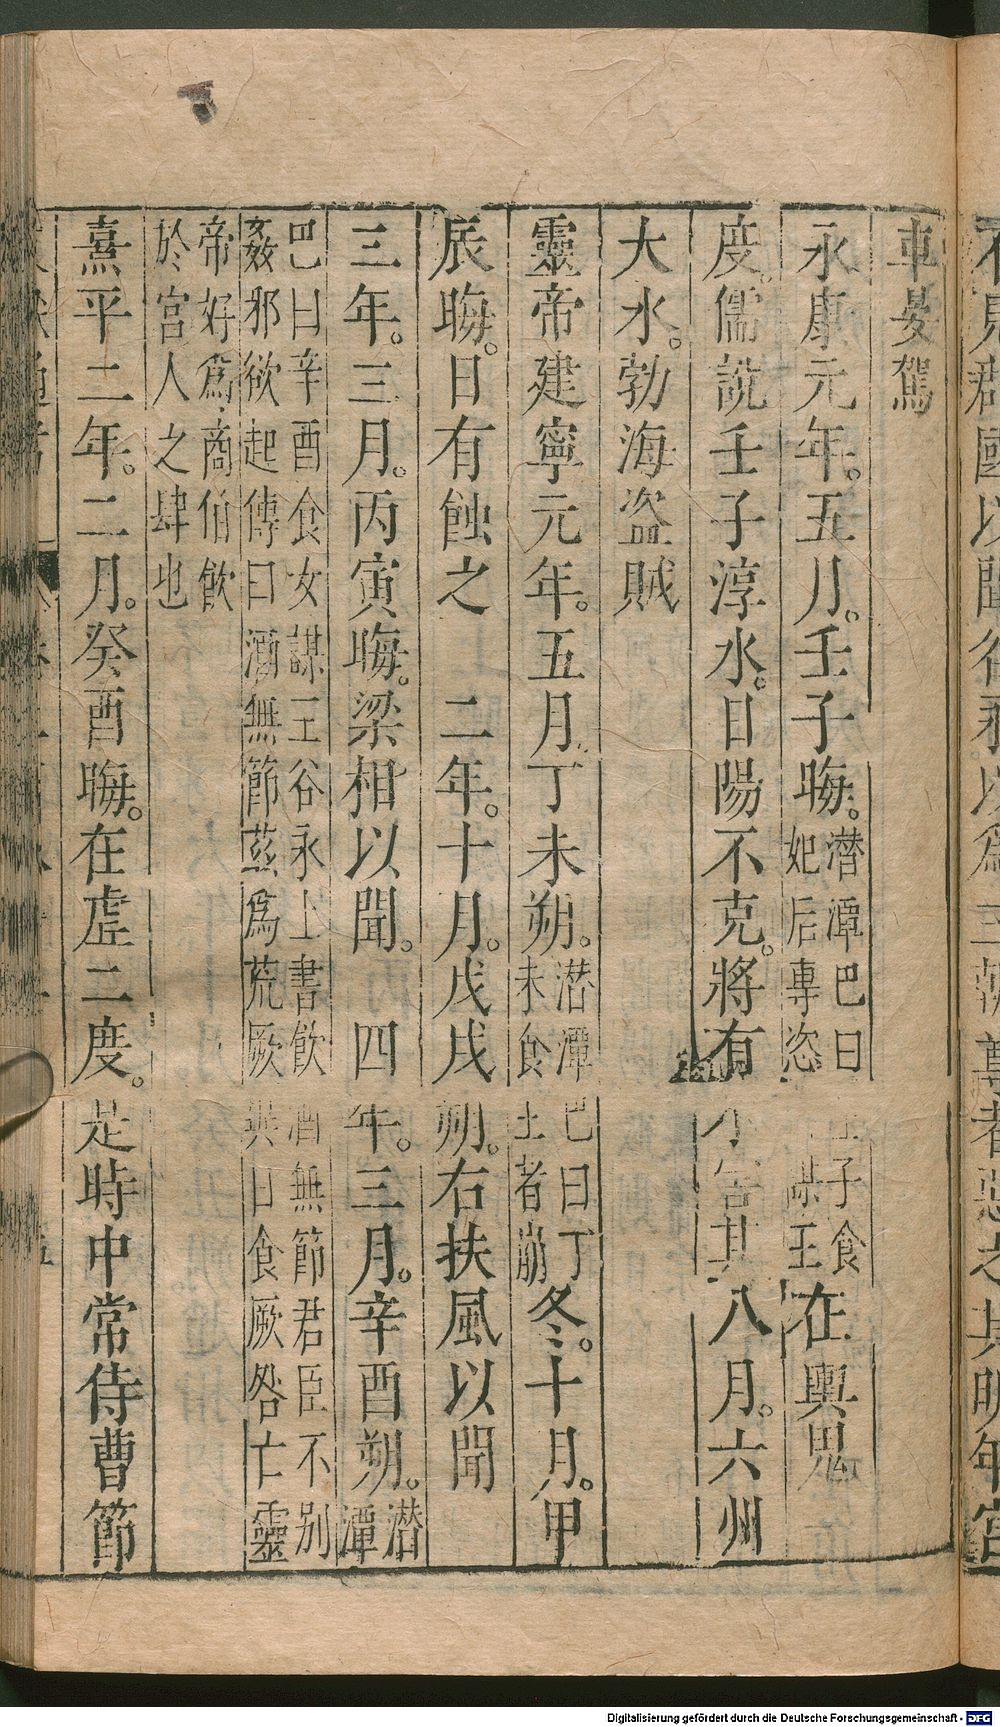 車晏駕
永康元年。五月。壬子晦。潛潭巴曰壬子食妃后專恣謀王在輿鬼
度。儒說壬子淳水。日陽不克。將有小害其八月。六州
大水。勃海盜賊
靈帝建寧元年。五月丁未朔。潛潭巴曰丁未食王者崩冬。十月。甲
辰晦。日有蝕之 二年。十月。戊戌朔。右扶風以聞
三年。三月。丙寅晦。梁相以聞。 四年。三月。辛酉朔。潛潭
巴曰辛酉食女謀王谷永上書飲酒無節君臣不別
姦邪欲起傳曰酒無節茲爲荒厥異日食厥咎亡靈
帝好爲商伯飲
於宮人之肆也
熹平二年。二月。癸酉晦。在虛二度。是時中常侍曹節
Digitalisierung gefördert durch die Deutsche Forschungsgemeinschaft - DFG